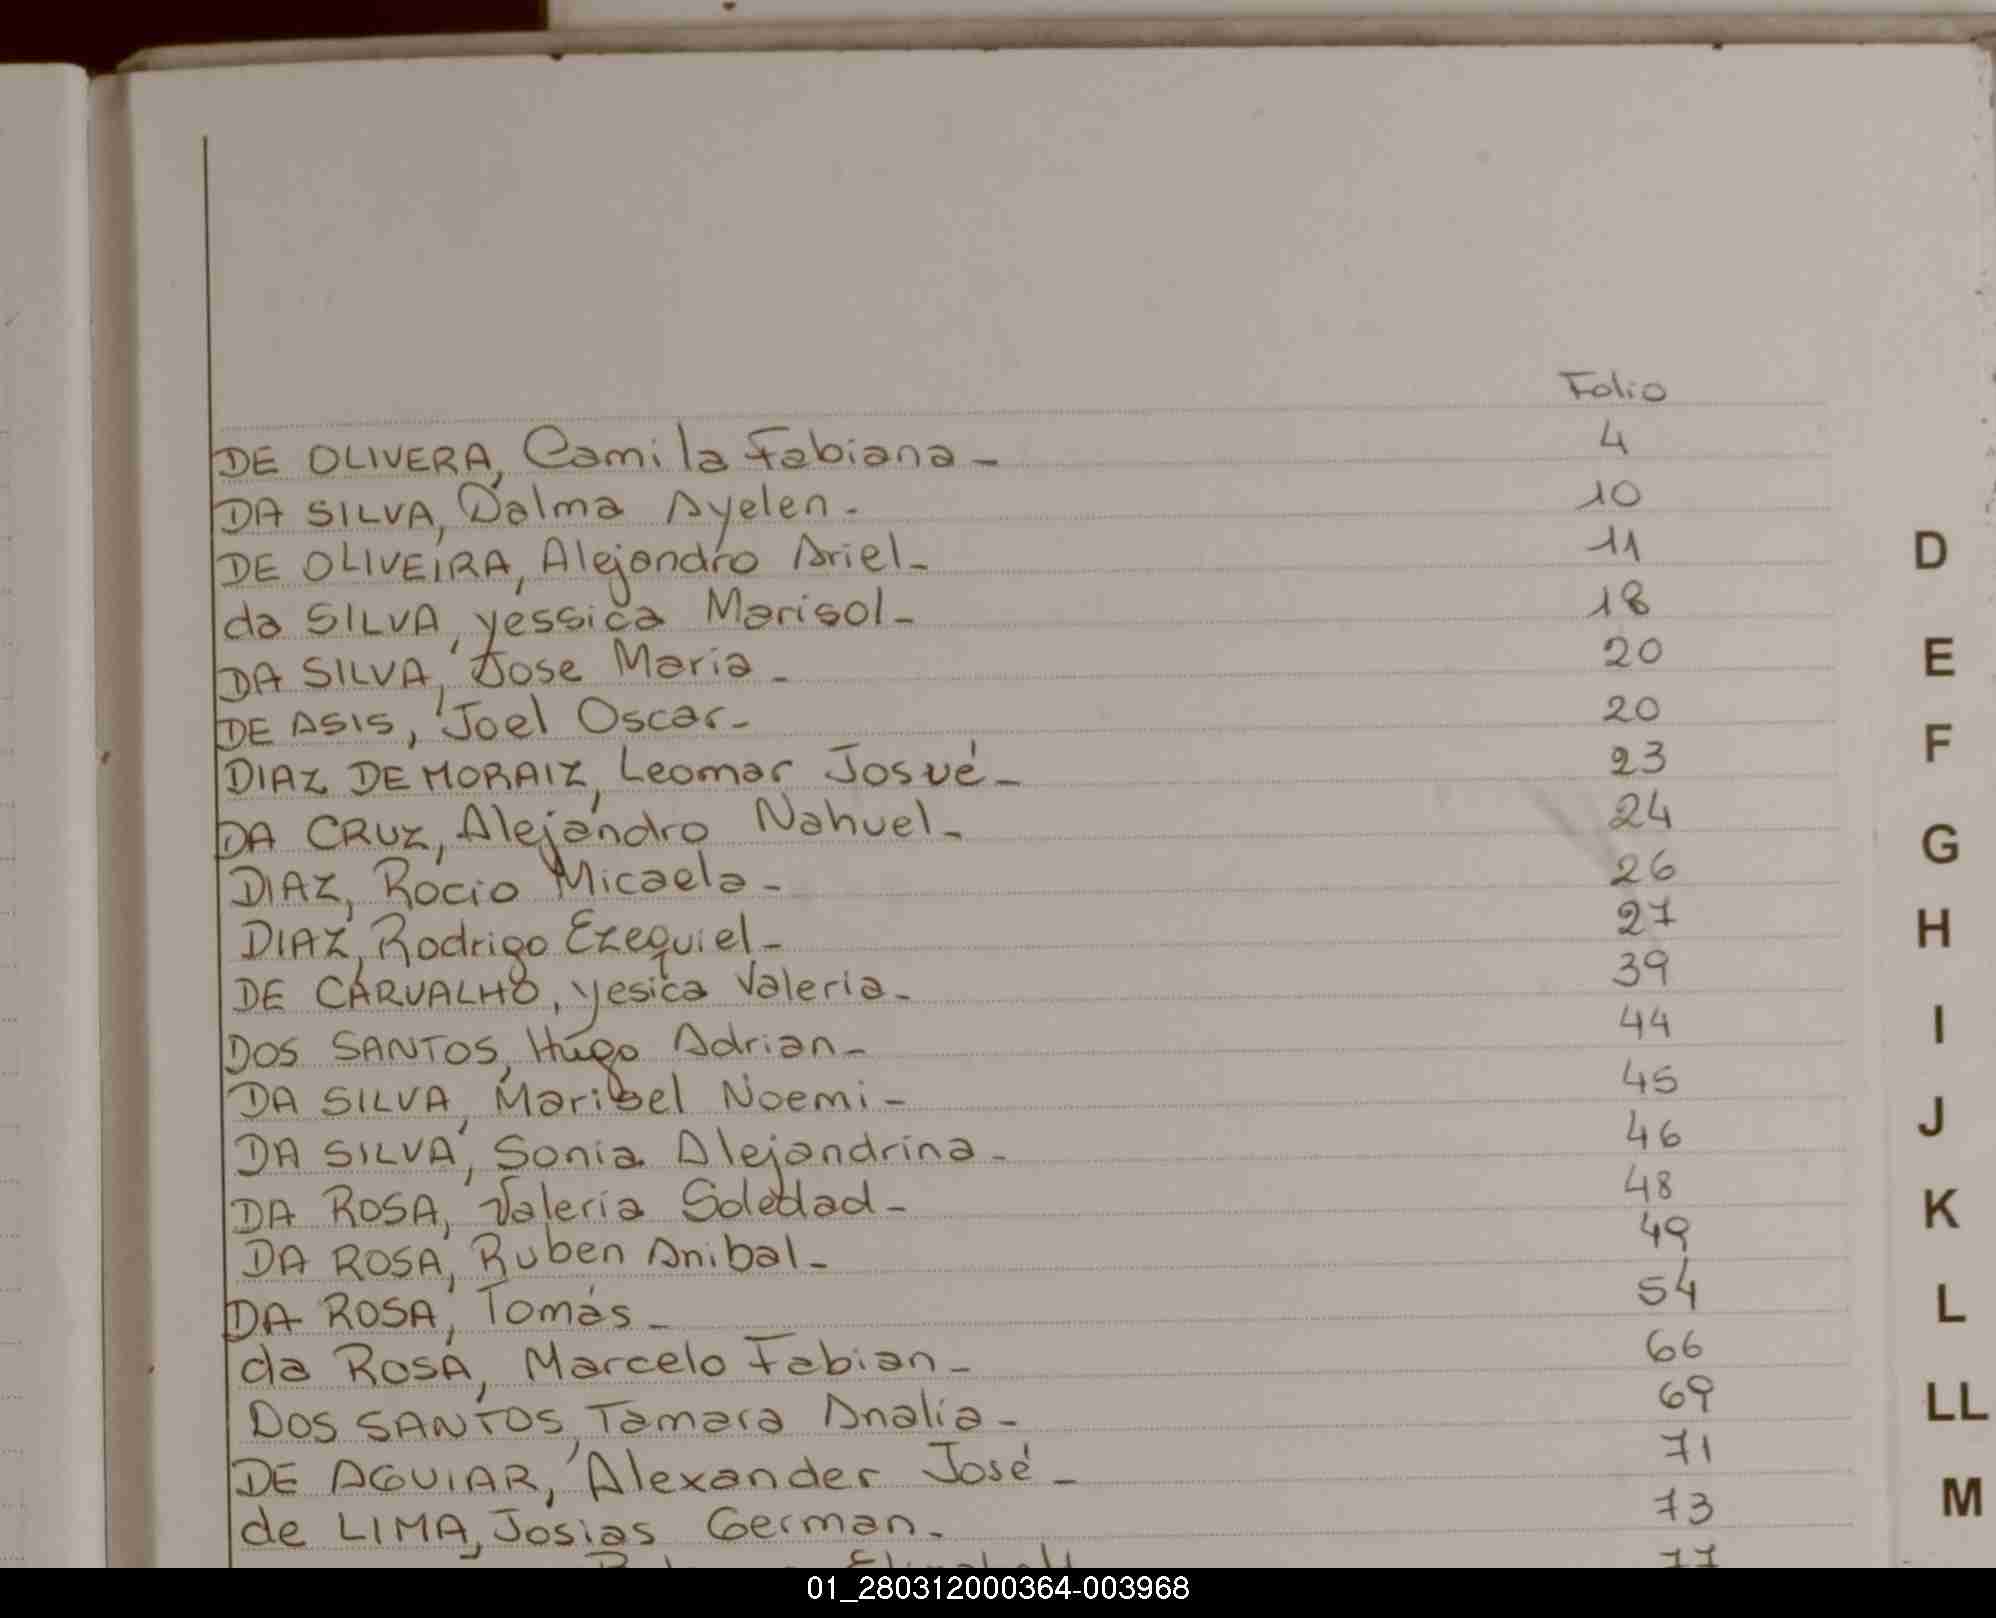 Folio
DE OLIVERA, Camila Fabiana - 4
DA SILVA, Dalma Ayelen - 10
DE OLIVEIRA, Alejandro Ariel - 11
da SILVA, yessica Marisol - 18
DA SILVA, Jose Maria - 20
DE ASIS, Joel Oscar - 20
DIAZ DE MORAIZ, Leomar Josué - 23
DA CRUZ, Alejandro Nahuel - 24
DIAZ, Rocio Micaela - 26
DIAZ, Rodrigo Ezequiel - 27
DE CARVALHO, yesica Valeria - 39
DOS SANTOS, Hugo Adrian - 44
DA SILVA, Marisel Noemi - 45
DA SILVA, Sonia Alejandrina - 46
DA ROSA, Valeria Soledad - 48
DA ROSA, Ruben Anibal - 49
DA ROSA, Tomás - 54
da ROSA, Marcelo Fabian - 66
DOS SANTOS, Tamara Analia - 69
DE AGUIAR, Alexander José - 71
de LIMA, Josias German - 73
77
D
E
F
G
H
I
J
K
L
LL
M
01_280312000364-003968